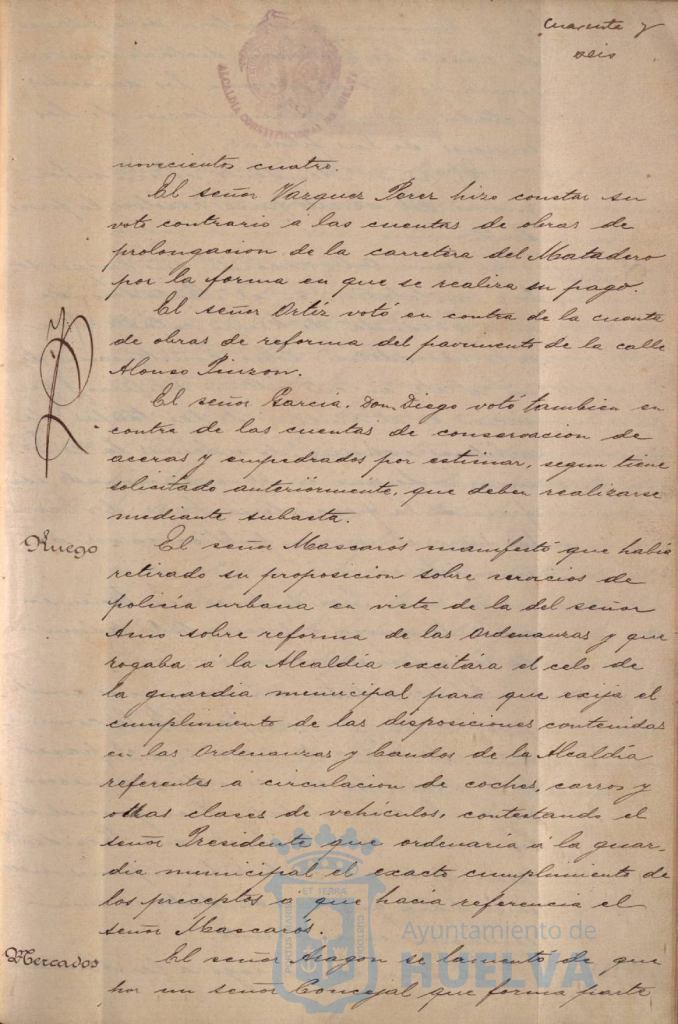 Cuarenta y
seis
ALCALDIA CONSTITUCIONAL DE HUELVA
novecientos cuatro.
El señor Vazquez Perez hizo constar su
voto contrario á las cuentas de obras de
prolongacion de la carretera del Matadero
por la forma en que se realiza su pago.
El señor Ortiz votó en contra de la cuenta
de obras de reforma del pavimento de la calle
Alonso Pinzon.
El señor Garcia, Don Diego votó tambien en
contra de las cuentas de conservacion de
aceras y empedrados por estimar, segun tiene
solicitado anteriormente, que deben realizarse
mediante subasta.
Ruego
El señor Mascarós manifestó que habia
retirado su proposicion sobre servicios de
policía urbana en vista de la del señor
Amo sobre reforma de las Ordenanzas y que
rogaba á la Alcaldía excitára el celo de
la guardia municipal para que exija el
cumplimiento de las disposiciones contenidas
en las Ordenanzas y bandos de la Alcaldía
referentes á circulacion de coches, carros y
otras clases de vehículos, contestando el
señor Presidente que ordenaría á la guar-
dia municipal el exacto cumplimiento de
los preceptos á que hacía referencia el
señor Mascarós.
Mercados
El señor Aragon se lamentó de que
por un señor Concejal que forma parte
Ayuntamiento de
HUELVA